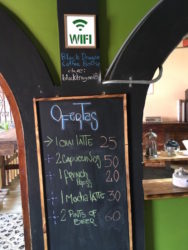 WIFI
Black Dragon
Coffee
Ofertas
1 LATTE 25
2 CAPUCCINOS 50
1 FRENCH 20
1 MOCHA LATTE 30
2 PINTS OF 60
BEER